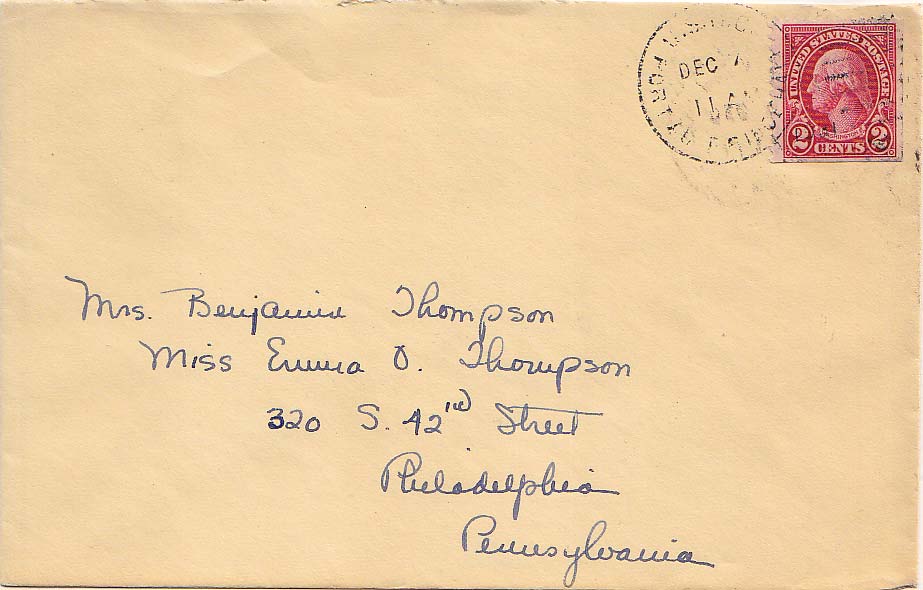 DEC
11 A
UNITED STATES POSTAGE
WASHINGTON
2 CENTS 2
Mrs. Benjamin Thompson
Miss Emma O. Thompson
320 S. 42nd Street
Philadelphia
Pennsylvania